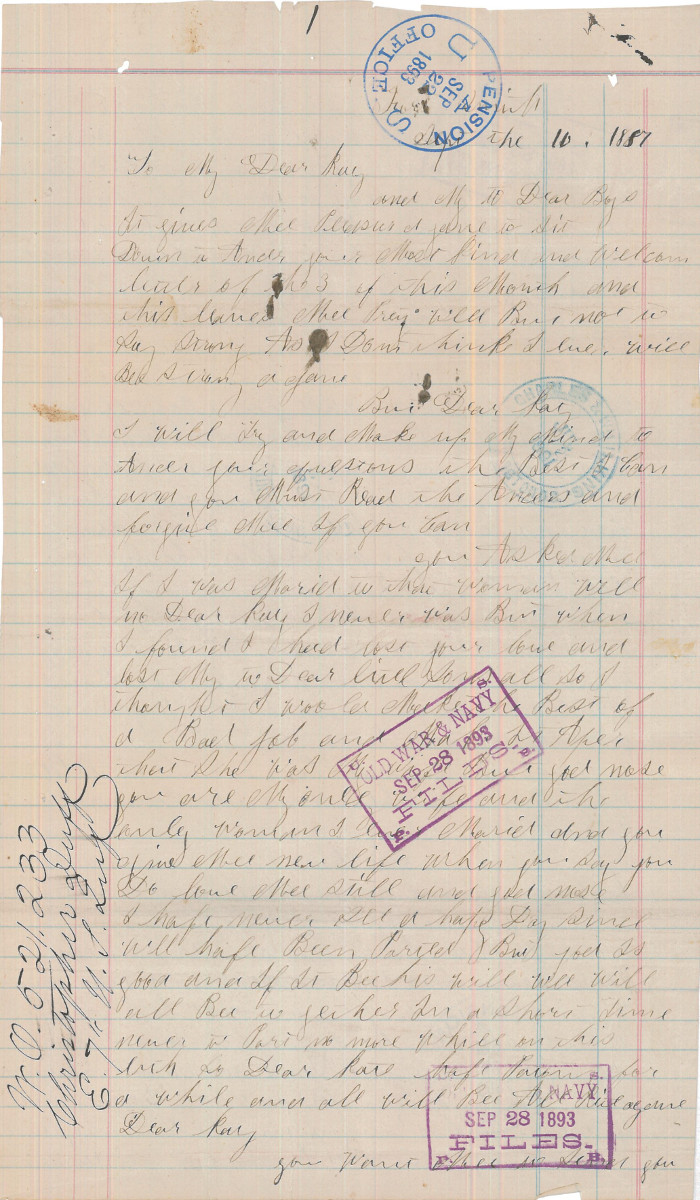 U.S. PENSION OFFICE
SEP 22 1893
the 10. 1887
To My Dear Kay
and My to Dear Boys
It gives Mee Pleasur a gane to Sit
Down to Ander your Most kind and Welcom
letter of the 3 of this Month and
this leaves Mee Prey will But not to
Say Strong As I Dont think I ever will
Bee Strong a gane
But Dear Kay
I will Try and Make up My Mind to
Ander your questons the Best I Can
and you Must Read the Anders and
forgive Mee If you Can
you Asked Mee
If I was Marid to that Woman Well
no Dear Kay I never was But when
I found I had lost your love and
lost My to Dear litll Sons all So I
thought I would Make the Best of
a Bad job and
that She was But god nose
you are My onle Wife and the
only Woman I Ever Marid and you
give Mee new life when you Say you
Do love Mee Still and god nose
I hafe never a hape Day Since
Will hafe Been Parted But god Is
good and If It Bee his Will Wee Will
all Bee to gether In a Short time
never to Part no more While on this
So Dear Kate hafe for
a while and all Will Bee agane
Dear Kay
you Want Mee to you
OLD WAR & NAVY
SEP 28 1893
FILES.
NAVY
SEP 28 1893
FILES.
W.O. 52,233
Christopher
E. 7th U.S. Inf